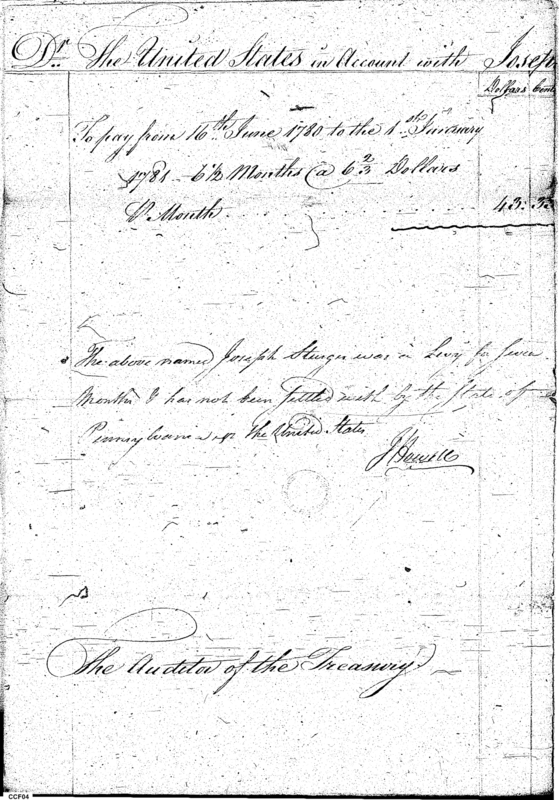 Dr. The United States in Account with Joseph
Dollars Cents
To pay from 16th June 1780 to the 1st January
1781 - 6 1/2 Months @ 6 2/3 Dollars
℔ Month. 43. 33
The above named Joseph Sturges was a Levy for seven
Months & has not been settled with by the State of
Pennsylvania or The United States
J Howell
The Auditor of the Treasury
CCF04